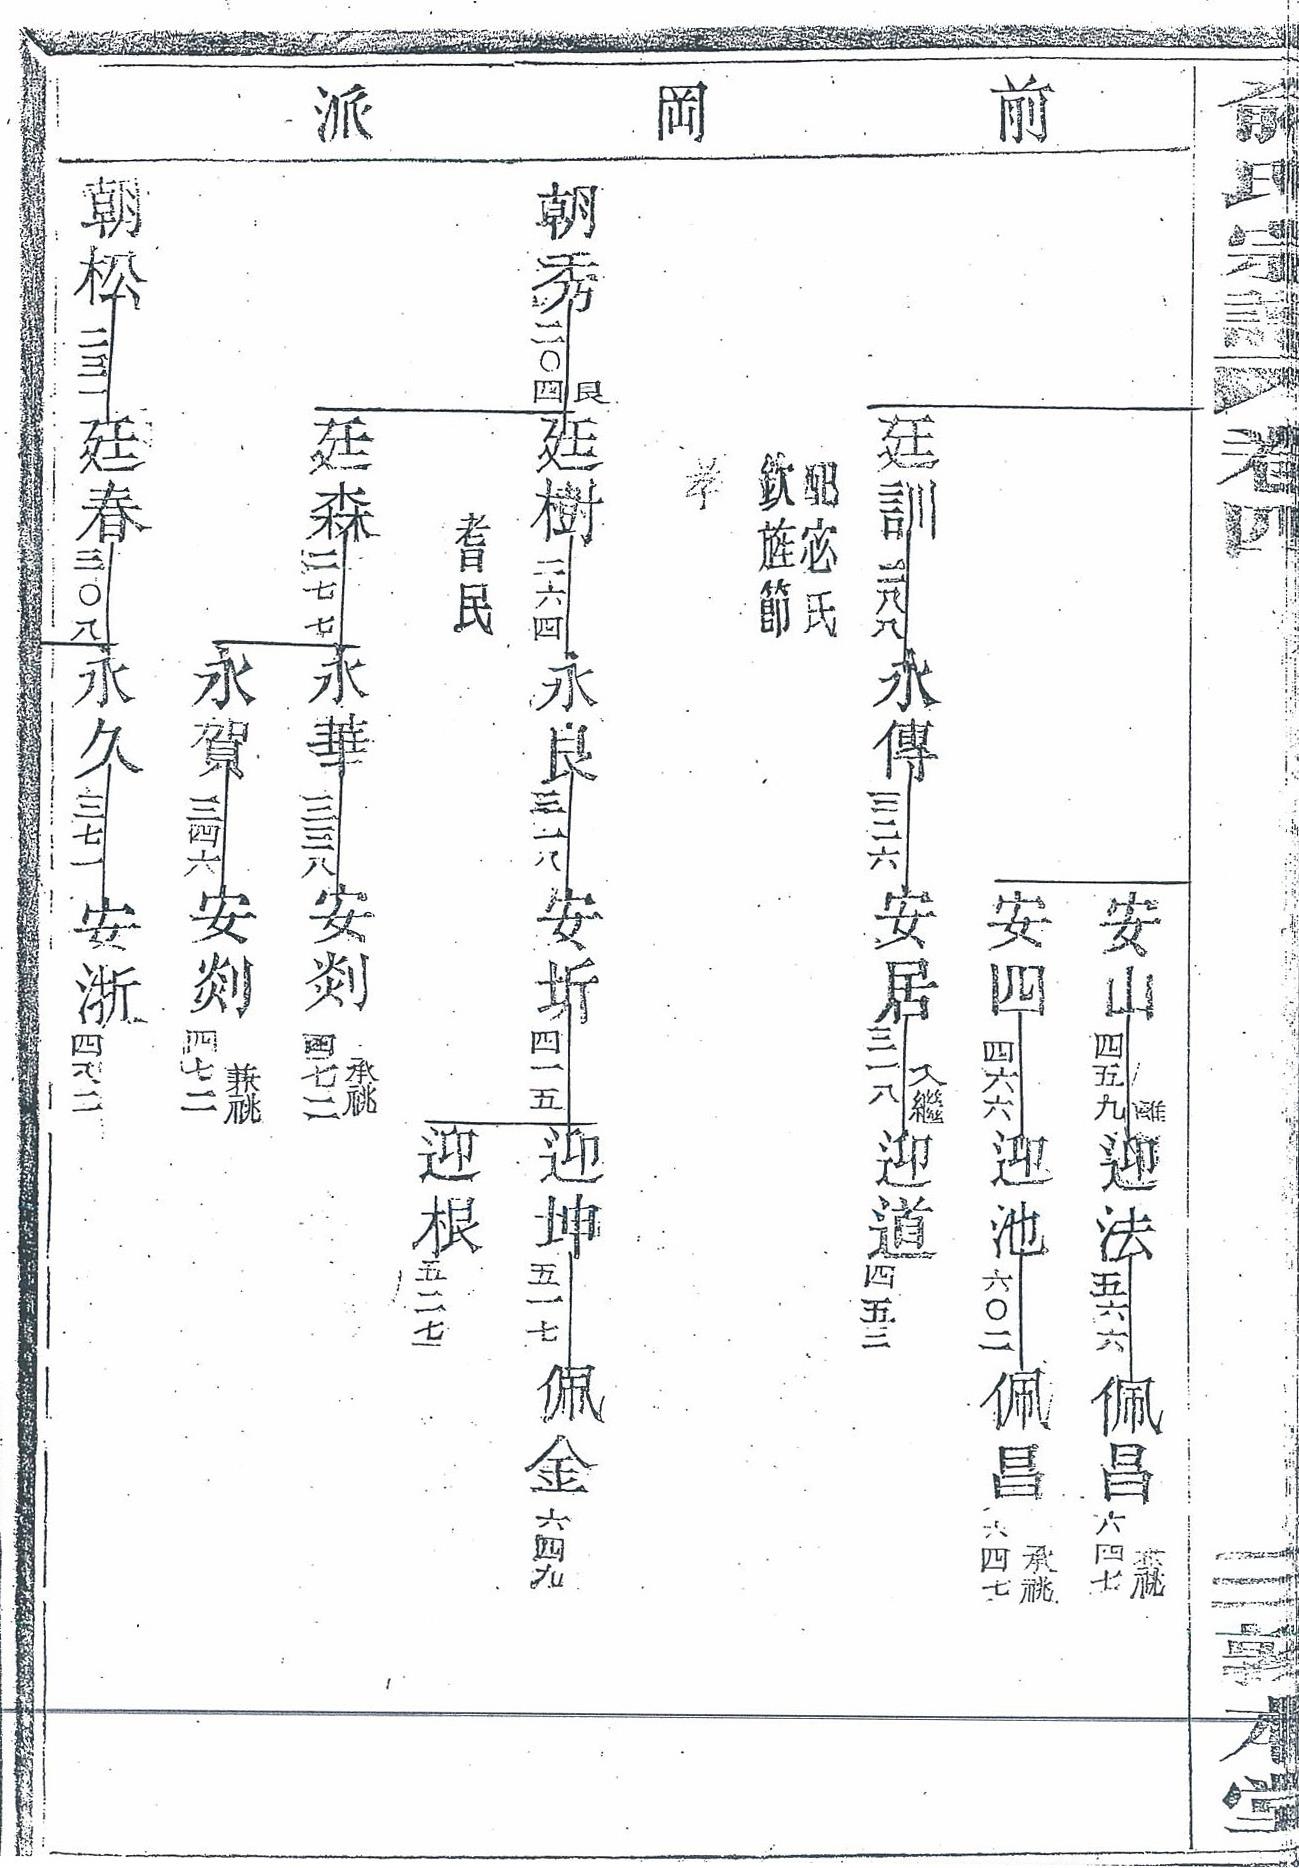 俞氏宗譜
卷四
三
敦本堂
前岡派
安山
四五九
離
迎法
五六六
佩昌
六四七
兼祧
安四
四六六
迎池
六〇二
佩昌
六四七
承祧
廷訓
二八八
永傳
三二六
安居
三一八
入繼
迎道
四五三
氏
欽旌節
孝
朝秀
二〇四
艮
廷樹
二六四
永良
三一八
安圻
四一五
迎坤
五一七
佩金
六四九
耆民
迎根
五二七
廷森
二七七
永華
三三八
安剡
四七二
承祧
永賀
三四六
安剡
四七二
兼祧
朝松
二三一
廷春
三〇八
永久
三七一
安浙